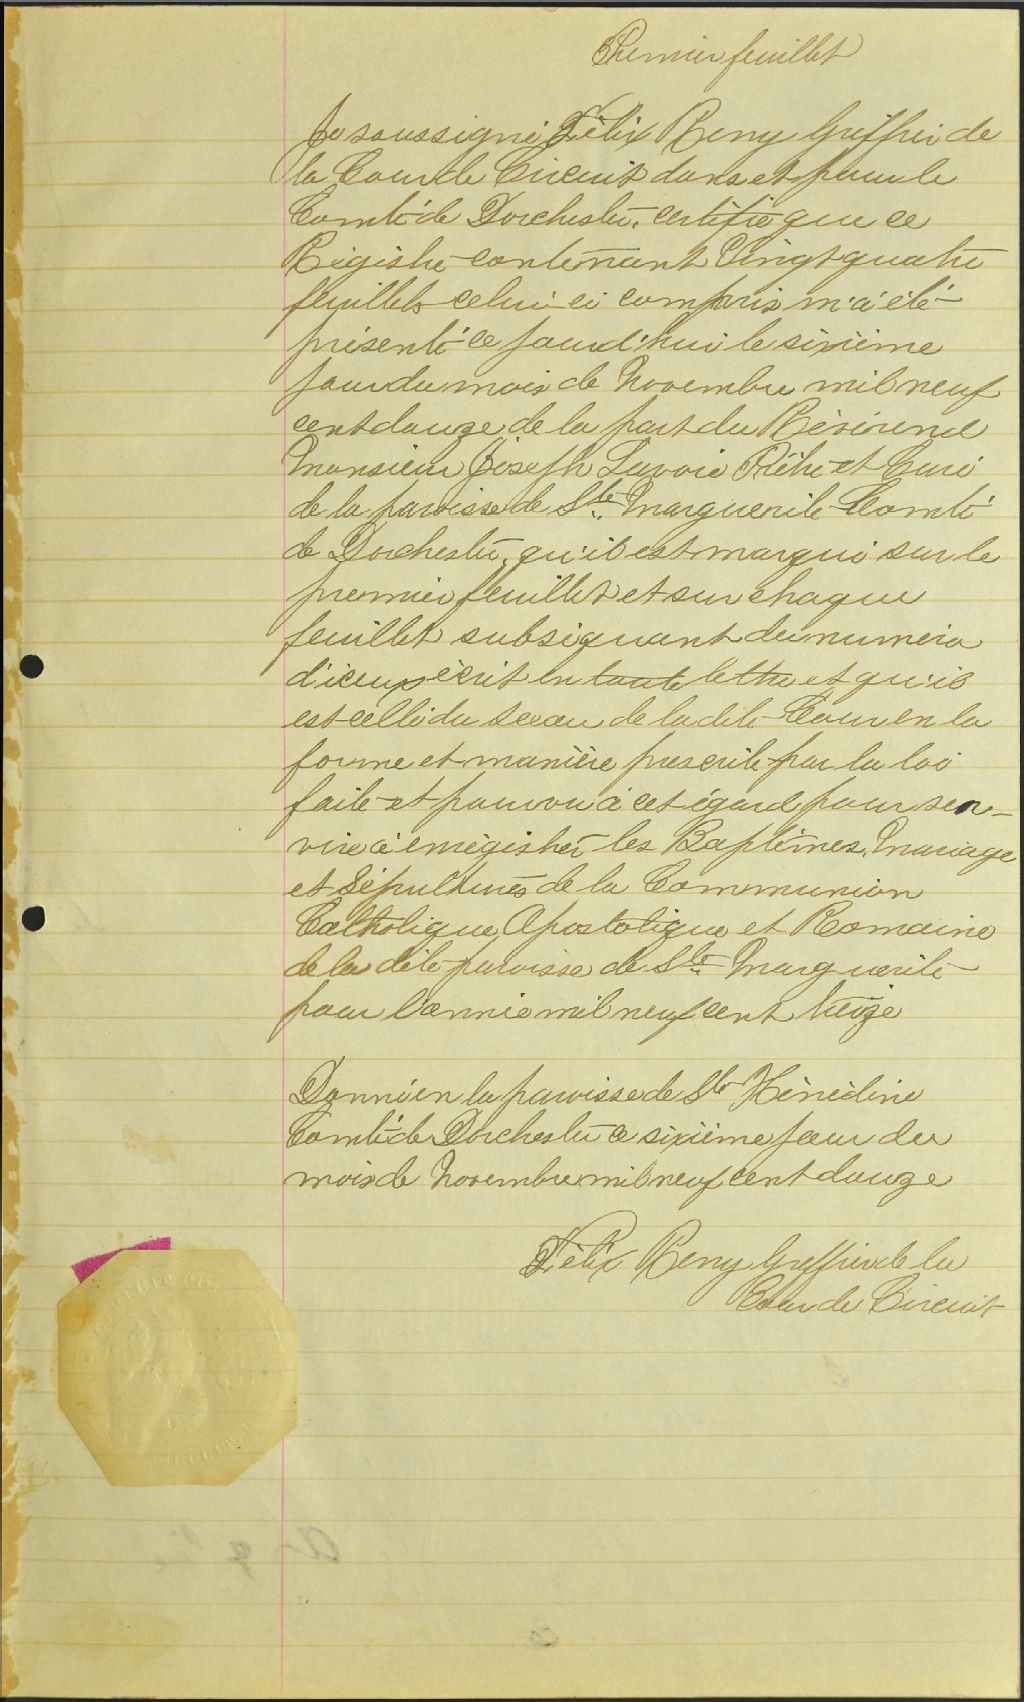 Premier feuillet
Je soussigné Félix Remy Greffier de
la Cour de Circuit dans et pour le
Comté de Dorchester, certifie que ce
Régistre contenant Vingt quatre
feuillets celui-ci compris m'a été
présenté ce jourd'hui le sixième
jour du mois de Novembre mil neuf
cent douze de la part du Révérend
Monsieur Joseph Lavoie Prêtre et Curé
de la paroisse de Ste Marguerite Comté
de Dorchester, qu'il est marqué sur le
premier feuillet et sur chaque
feuillet subséquant du numéro
d'iceux écrit en toute lettre et qu'il
est cellé du sceau de la dite Cour en la
forme et manière prescrite par la loi
faite et pourvu à cet égard pour ser-
vir à enrégistrer les Baptêmes, Mariage
et Sépultures de la Communion
Catholique, Apostolique et Romaine
de la dite paroisse de Ste Marguerite
pour l'année mil neuf cent treize
Donné en la paroisse de Ste Hénédine
Comté de Dorchester ce sixième jour du
mois de Novembre mil neuf cent douze
Félix Remy Greffier de la
Cour de Circuit